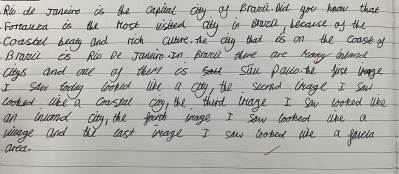 Rio de Janeiro is the capital city of Brazil. Did you know that
Fortaleza is the Most visited city in Brazil, because of the
Coastal beaty and rich culture. the city that is on the coast of
Brazil is Rio De Janeiro. In Brazil there are Many inland
citys and one of them is São Paulo. the first image
I saw today looked like a city, the second image I saw
looked like a coastal city, the third image I saw looked like
an inland city, the fourth image I saw looked like a
village and the last image I saw looked like a favela
area.